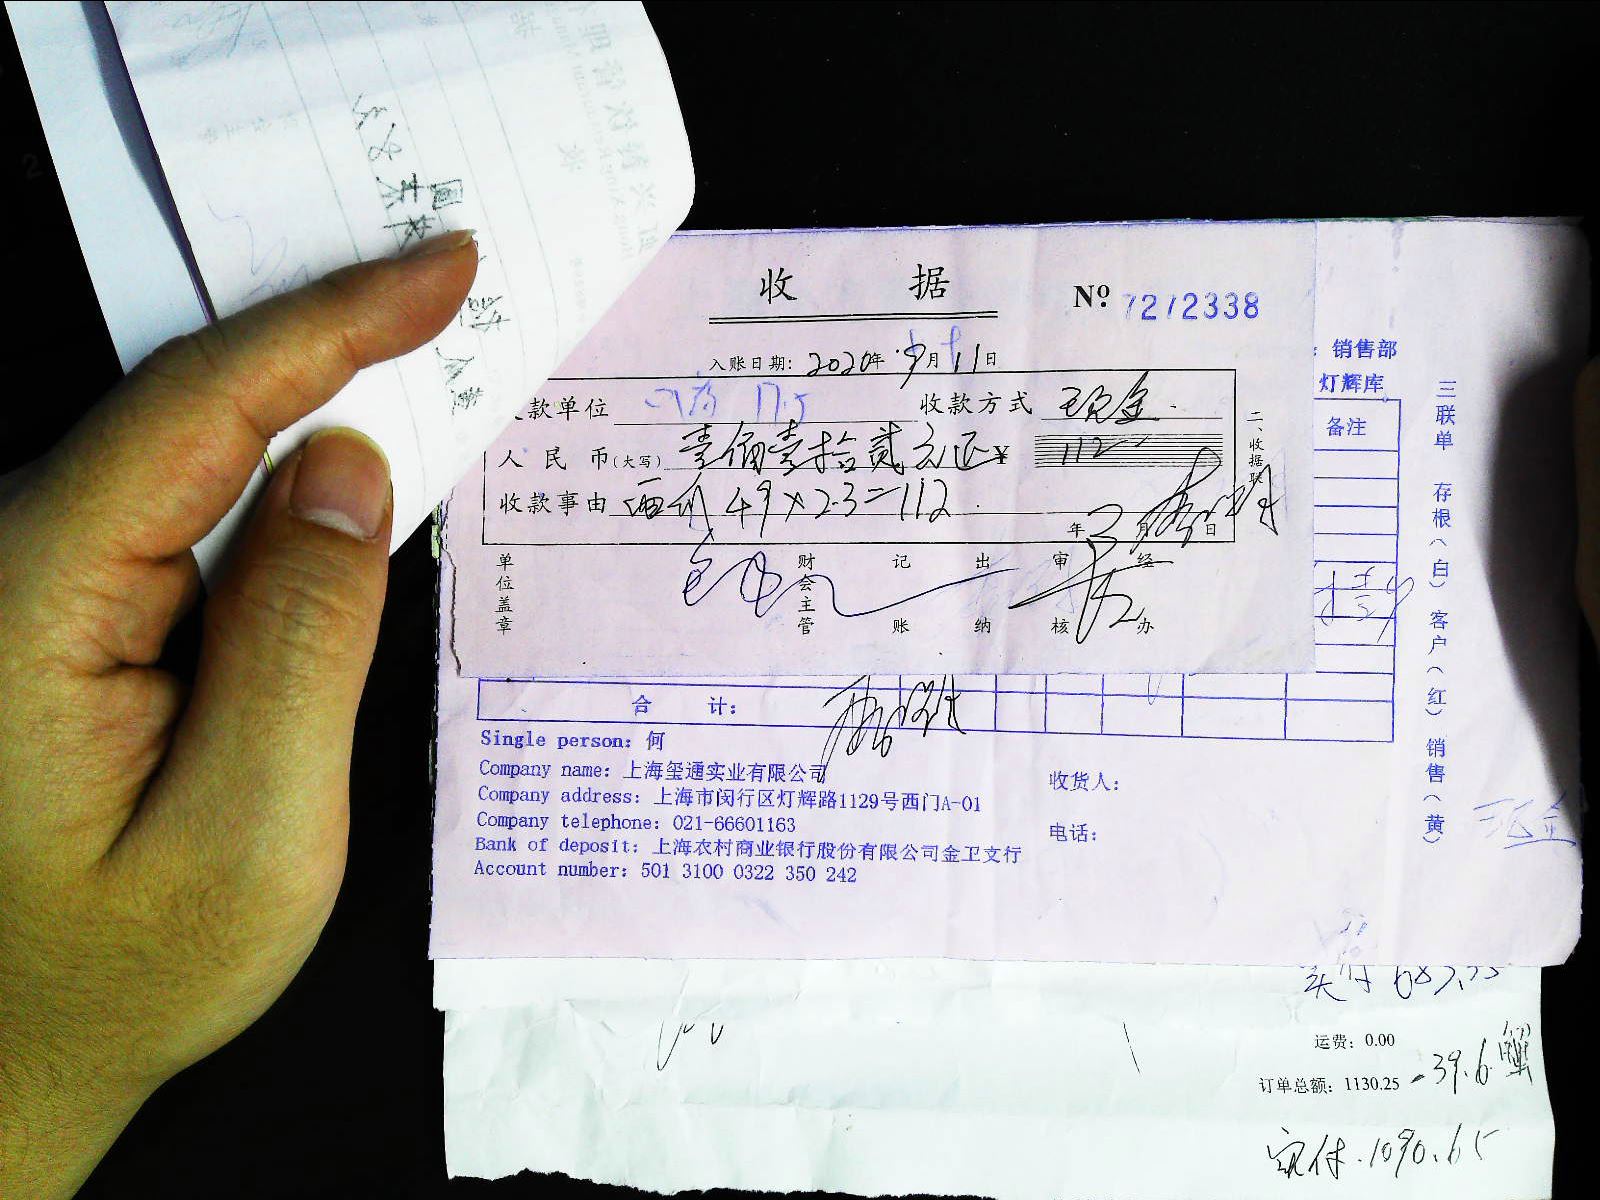 收 据
Nº 7212338
入账日期: 2020年 9月 11日
款单位
收款方式 现金
人民币(大写) 壹佰壹拾贰元正 ¥ 112
收款事由 49×2.3=112
年 月 日
二、收据联
单位盖章 财会主管 记账 出纳 审核 经办
: 销售部
灯辉库
备注
合 计:
Single person: 何
Company name: 上海玺通实业有限公司
Company address: 上海市闵行区灯辉路1129号西门A-01
Company telephone: 021-66601163
Bank of deposit: 上海农村商业银行股份有限公司金卫支行
Account number: 501 3100 0322 350 242
收货人:
电话:
三联单 存根(白) 客户(红) 销售(黄)
现金
实付 683.35
运费: 0.00
订单总额: 1130.25 -39.6 蟹
实付.1090.65